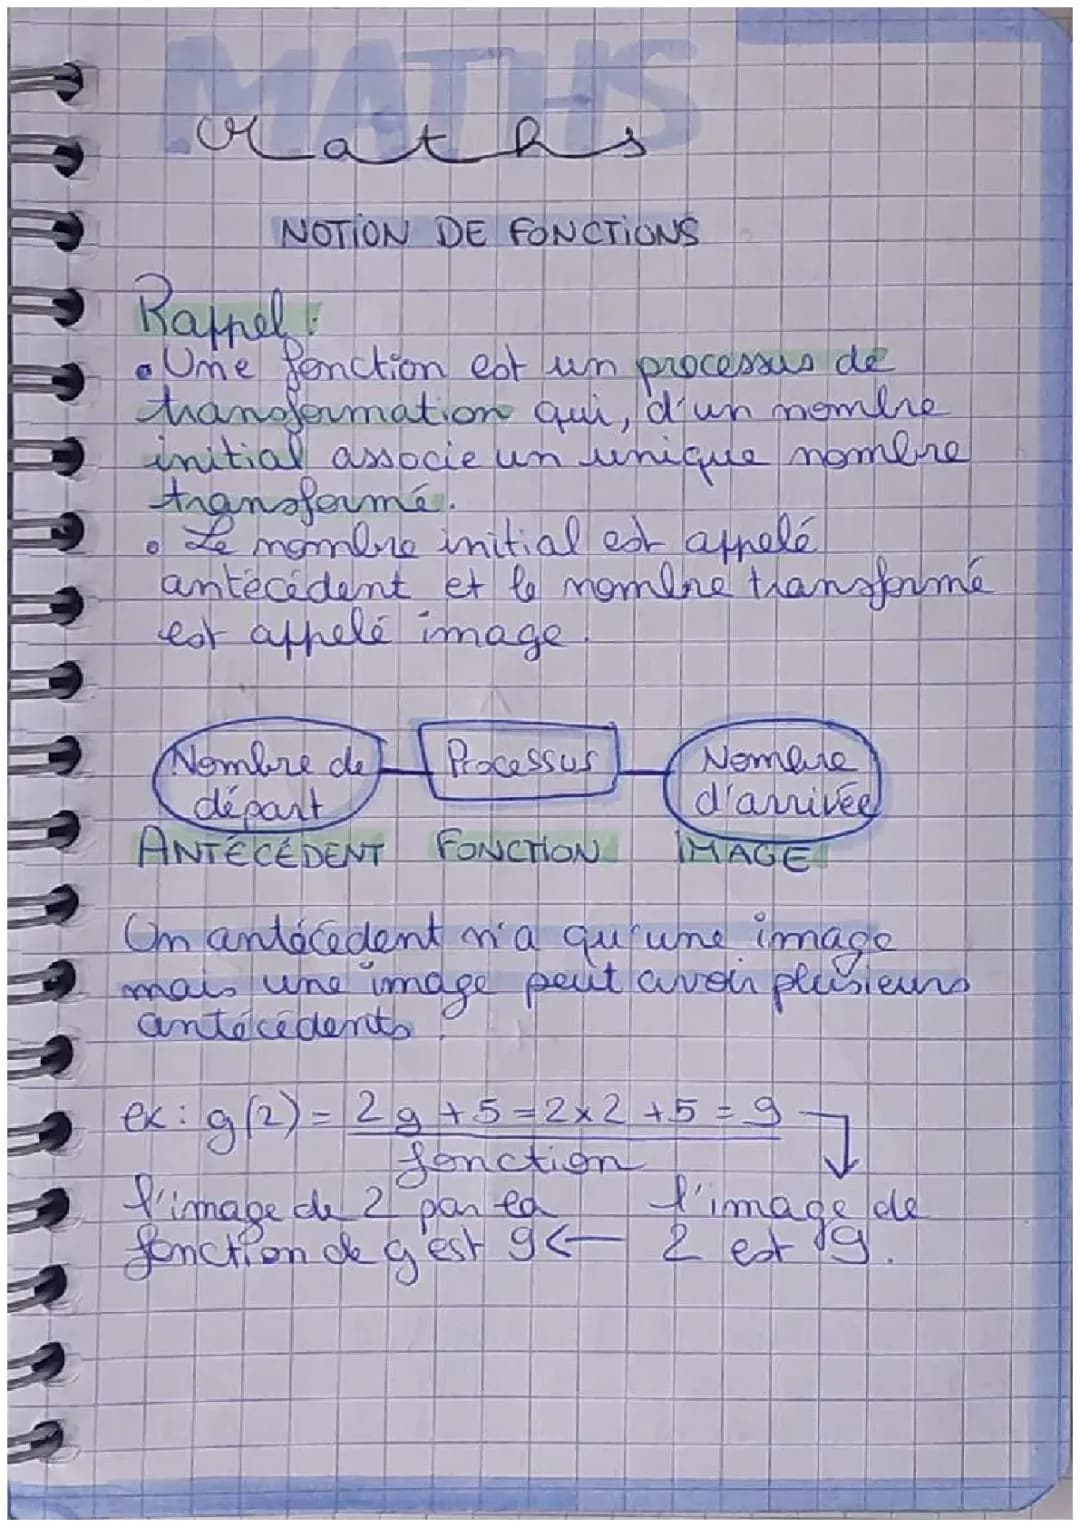 MATHS
Maths
NOTION DE FONCTIONS
Rappel :
• Une fonction est un processus de
transformation qui, d'un nombre
initial associe un unique nombre
transformé.
• Le nombre initial est appelé
antécédent et le nombre transformé
est appelé image.
Nombre de départ
Processus
Nombre d'arrivée
ANTÉCÉDENT FONCTION IMAGE
Un antécédent n'a qu'une image
mais une image peut avoir plusieurs
antécédents.
ex : g(2) = 2g + 5 = 2 x 2 + 5 = 9
fonction
l'image de 2 par la
fonction de g est 9 ←
l'image de
2 est 9.